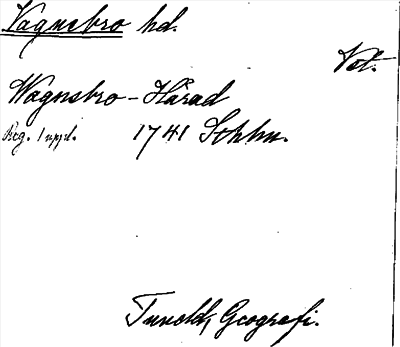 Vagnsbro hd.
Vst.
Wagnsbro-Härad
Reg. 1 uppl. 1741 Sthlm.
Tuneld, Geografi.